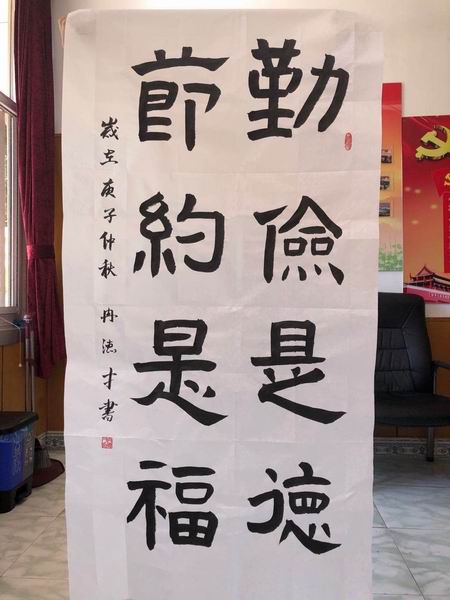 勤儉是德
節約是福
歲在庚子仲秋 冉德才書